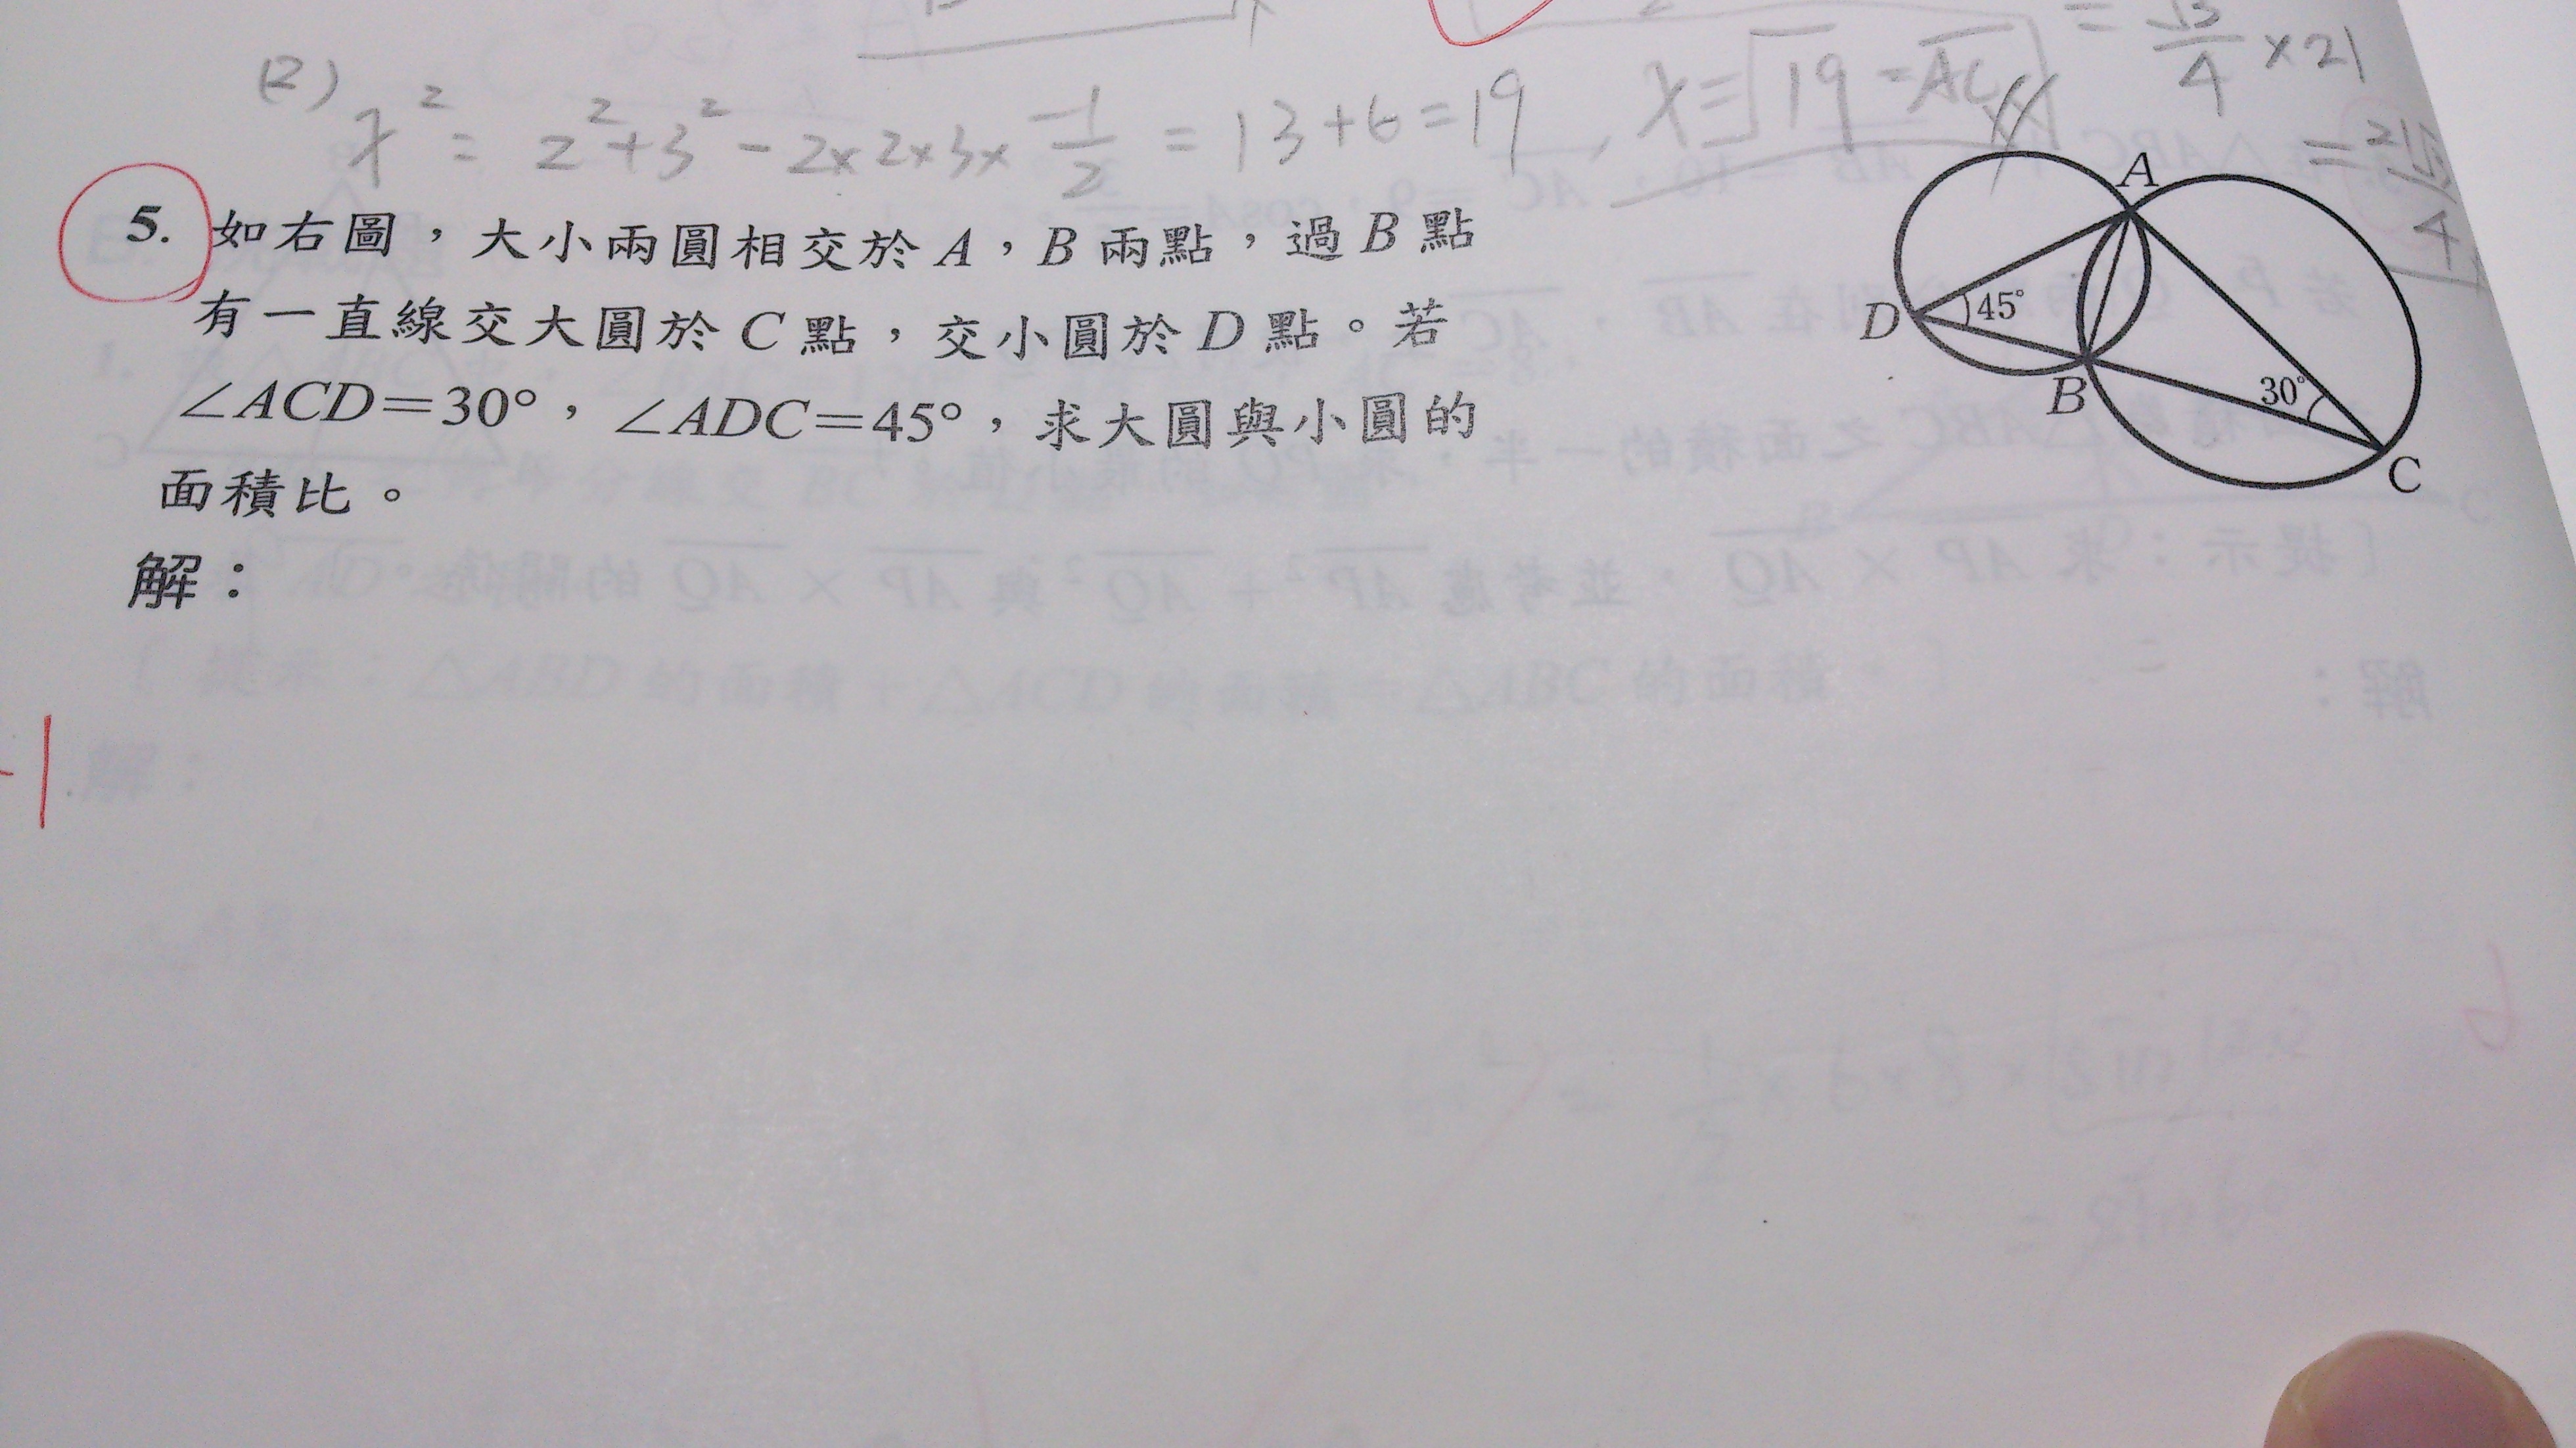 = √3/4 ×21
(2) x² = 2²+3² - 2×2×3× -1/2 = 13+6=19, x=√19=AC
= 21√3/4
5. 如右圖，大小兩圓相交於A，B兩點，過B點
有一直線交大圓於C點，交小圓於D點。若
∠ACD=30°，∠ADC=45°，求大圓與小圓的
面積比。
解：
A
D
45°
B
30°
C
-1